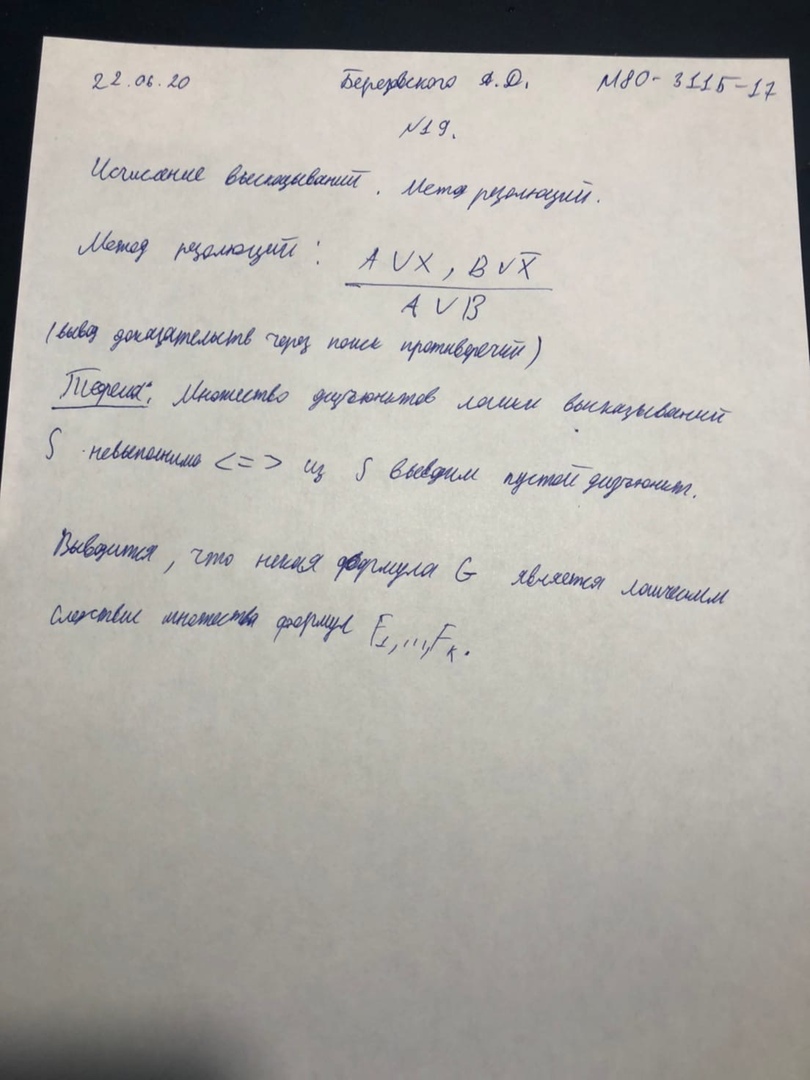 22.06.20 Березвского А.Д. М80-311Б-17
N19.
Исчисление высказываний. Метод резолюций.
Метод резолюций: A ∨ X, B ∨ X̅
A ∨ B
(вывод доказательств через поиск противоречий)
Теорема: Множество дизъюнктов логики высказываний
S невыполнимо <=> из S выводим пустой дизъюнкт.
Выводится, что некая формула G является логическим
следствие множества формул F₁,...,Fₖ.